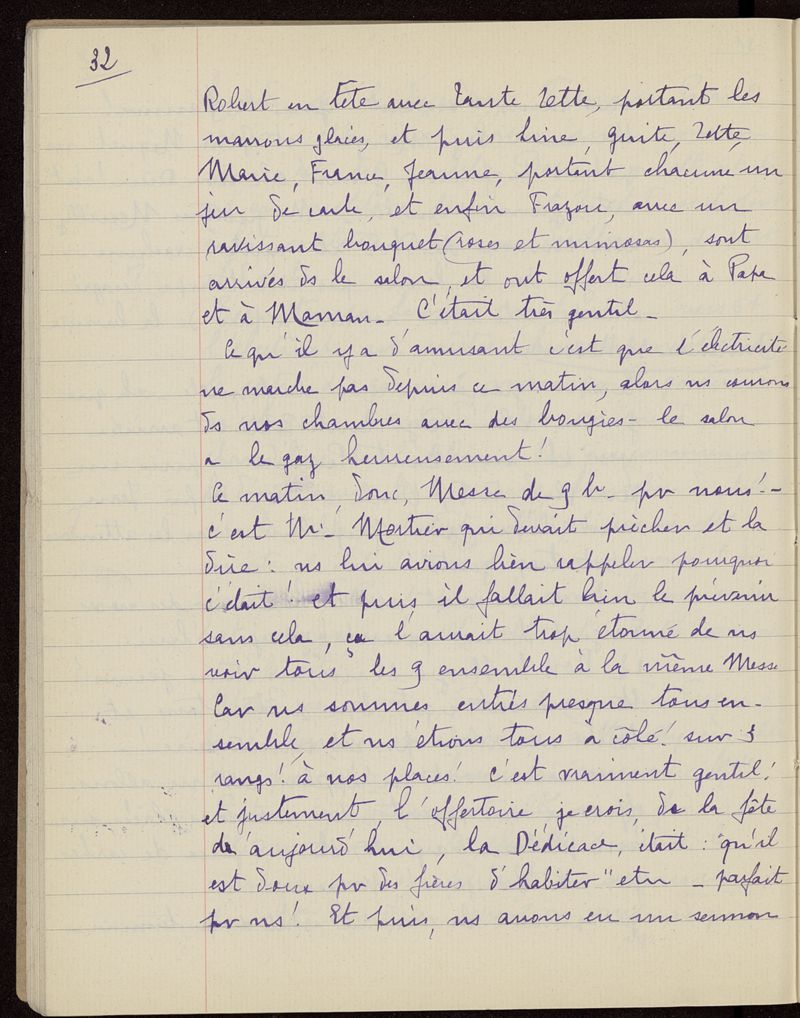 32
Robert en tête avec Tante Zette, portant les
marrons glacés, et puis Line, Guite, Zette,
Marie, France, Jeanne, portant chacune un
jeu de carte, et enfin Frazou, avec un
ravissant bouquet (roses et mimosas), sont
arrivés ds le salon, et ont offert cela à Papa
et à Maman - C'était très gentil -
Ce qu'il y a d'amusant c'est que l'électricité
ne marche pas depuis ce matin, alors ns courons
ds nos chambres avec des bougies - le salon
a le gaz heureusement!
Ce matin, donc, Messe de 9 h - pr nous! -
c'est Mr Mortier qui devait prêcher et la
dire: ns lui avions bien rappeler pourquoi
c'était! et puis, il fallait bien le prévenir
sans cela, ça l'aurait trop étonné de ns
voir tous les 9 ensemble à la même Messe
Car ns sommes entrés presque tous en-
semble, et ns étions tous à côté! sur 3
rangs! à nos places! c'est vraiment gentil!
et justement, l'offertoire, je crois, de la fête
de aujourd'hui, la Dédicace, était: "qu'il
est doux pr des frères d'habiter" etc - parfait
pr ns! Et puis, ns avons eu un sermon